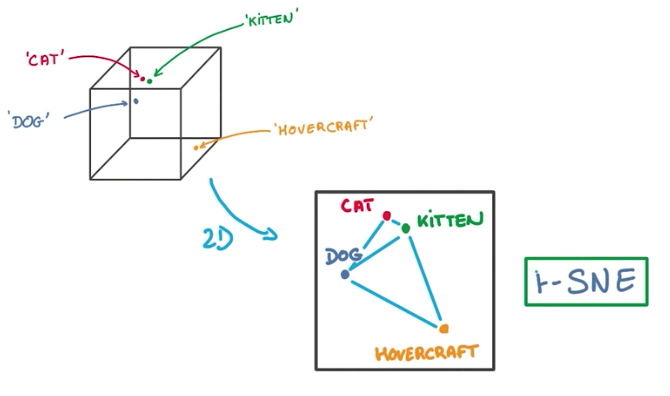 'KiTTEN'
'CAT'
'DOG'
'HOVERCRAFT'
2D
CAT
KiTTEN
DOG
HOVERCRAFT
t-SNE